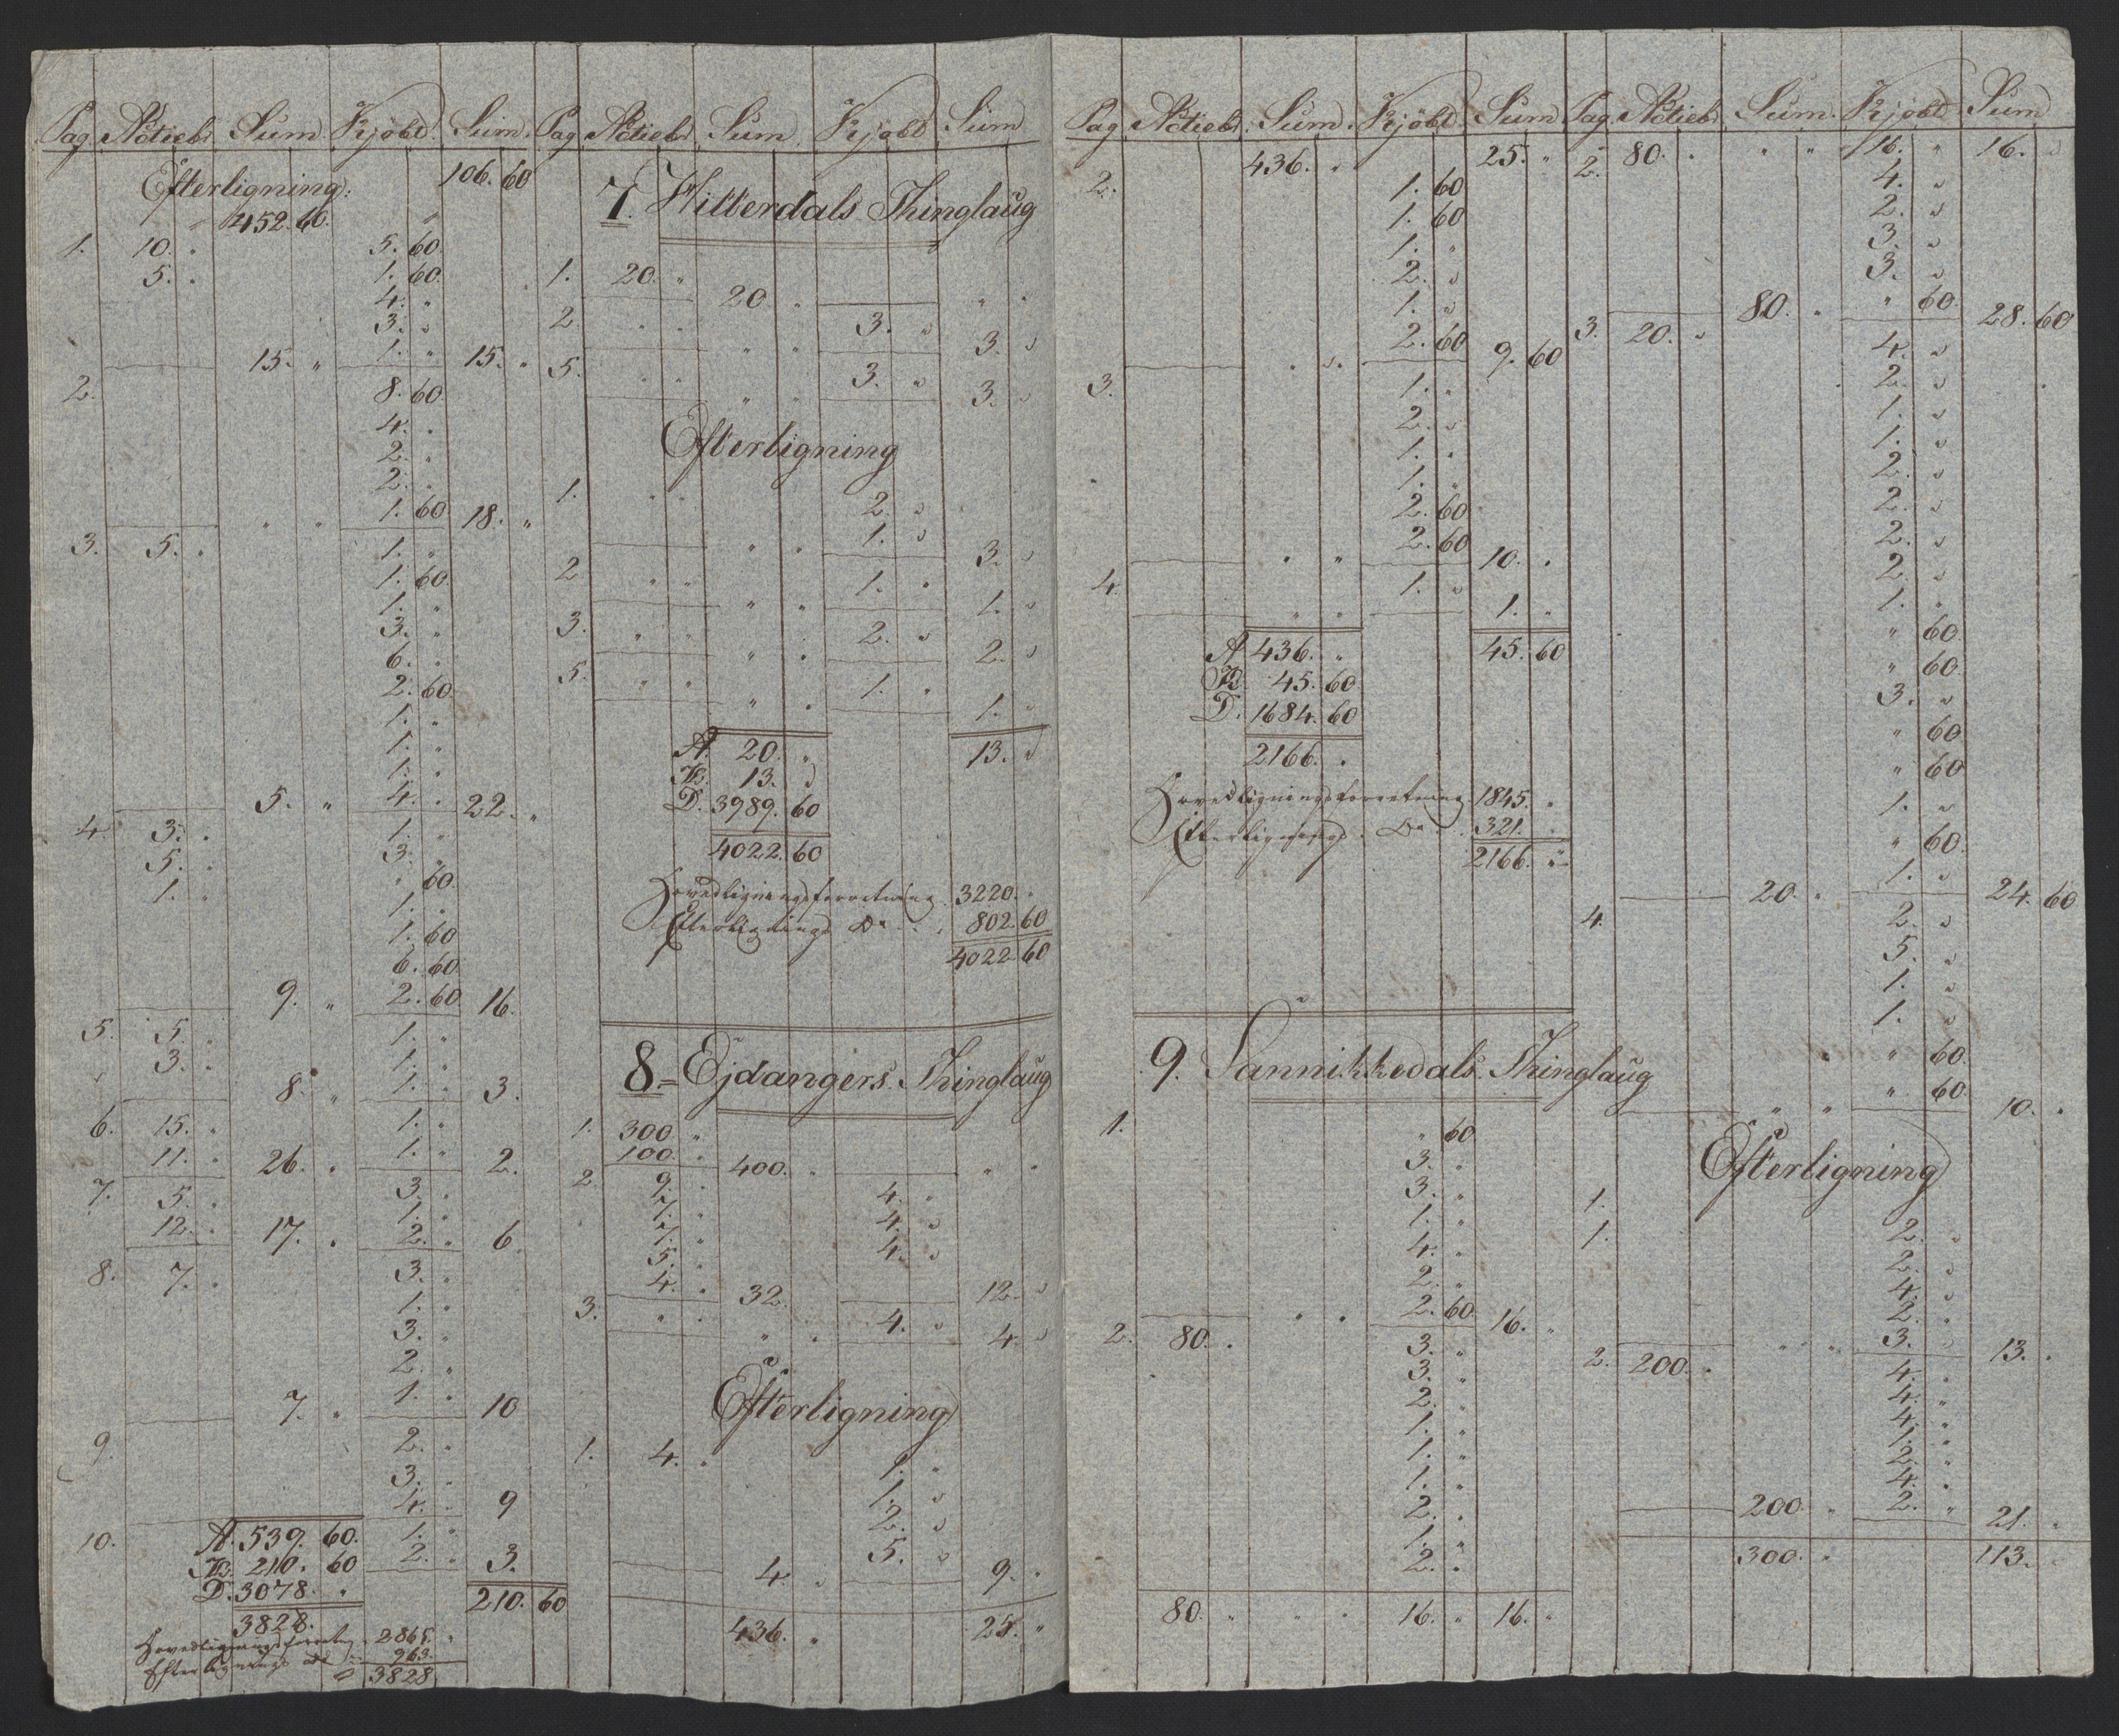 Pag. Actieb. Sum. Kjöbt. Sum.
Efterligning. 106. 60
" 452. 60. "
1. 10. " 5. 60.
5. " 1. 60.
4. "
3. "
15. " 1. " 15. "
2. 8. 60.
4. "
2. "
2. "
" " 1. 60 18. "
3. 5. " 1. "
1. 60.
1. "
3. "
6. "
2. 60.
1. "
1. "
1. "
5. " 4. " 22. "
4. 3. " 1. "
5. " 3. "
1. " " 60.
1. "
1. 60
6. 60
9. " 2. 60 16.
5. 5. " 1. "
3. " 1. "
8. " 1. " 3.
6. 15. " 1. "
11. " 26. " 1. " 2.
7. 5. " 3. "
1. "
12. " 17. " 2. " 6.
8. 7. " 3. "
1. "
3. "
2. "
7. " 1. " 10
9. 2. "
3. "
4. " 9
10. A. 539. 60. 1. "
B. 210. 60 2. " 3.
D. 3078. " 210. 60
3828.
Hovedligningsforretn. 2865. "
Efterlignings do 963.
3828.
Pag. Actieb. Sum. Kjöbt Sum
7. Hitterdals Thinglaug
1. 20. " 20 " " "
2 " " " " 3. " 3. "
5. " " " " 3. " 3. "
Efterligning
1. " " 2. "
" " 1. " 3. "
2 " " " " 1. " 1. "
3. " " " " 2. " 2. "
5. " " " " 1. " 1. "
A. 20. " 13. "
B. 13. "
D. 3989. 60
4022. 60
Hovedligningsforretning. 3220. "
Efterlignings Do. 802. 60
4022. 60
8. Ejdangers Thinglaug
1. 300 "
100. " 400. " " "
2 9. " 4. "
7. " 4. "
7. " 4. "
5. "
4. " 32. 12. "
3. " " " " 4. " 4. "
Efterligning
1. 4. " 1. "
1. "
2. "
5. "
4. " 9. "
436. " 25. "
Pag. Actieb. Sum. Kjöbt Sum
436. " 25. "
2. 1. 60
1. 60
1. "
2. "
1. "
2. 60
" " 9. 60
3. 1. "
2. "
1. "
1. "
2. 60
2. 60
" " 10. "
4. 1. "
" " 1. "
A 436. " 45. 60
B. 45. 60
D. 1684. 60
2166. "
Hovedligningsforretning. 1845. "
Efterlignings Do. 321. "
2166. "
9. Sannikkedals Thinglaug
1. " 60
3. "
3. "
1. "
4. "
2. "
" " 2. 60 16. "
2. 80. " 3. "
3. "
2. "
1. "
1. "
1. "
2. "
1. "
2. "
80. " " " 16. " 16. "
Pag. Actieb. Sum. Kjöbt Sum
2. 80. " " " 16. " 16. "
4. "
2. "
3. "
3. "
80. " " 60 28. 60
3. 20. " 4. "
2. "
1. "
1. "
2. "
2. "
2. "
2. "
1. "
" 60.
" 60.
3. "
" 60
" 60
1. "
" 60.
1. "
20. " 24. 60
4. 2. "
5. "
1. "
1. "
" 60.
" 60.
" " 10. "
Efterligning
1.
1. 2. "
2. "
4. "
2. "
" " 3. " 13. "
2. 200. " 4. "
4. "
4. "
1. "
2. "
4. "
200. " 2. " 21. "
300. " 113. "